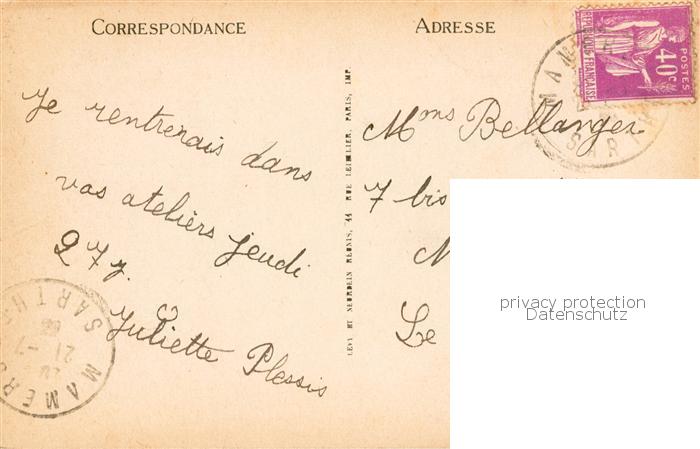 CORRESPONDANCE
Je rentrerais dans
vos ateliers jeudi
27 j.
Juliette Plessis
MAMERS
SARTHE
21-7
LÉVY ET NEURDEIN RÉUNIS, 44 RUE LETELLIER, PARIS, IMP.
ADRESSE
Mms Bellanger
7 bis
Le
REPUBLIQUE FRANÇAISE
POSTES
40c
privacy protection
Datenschutz